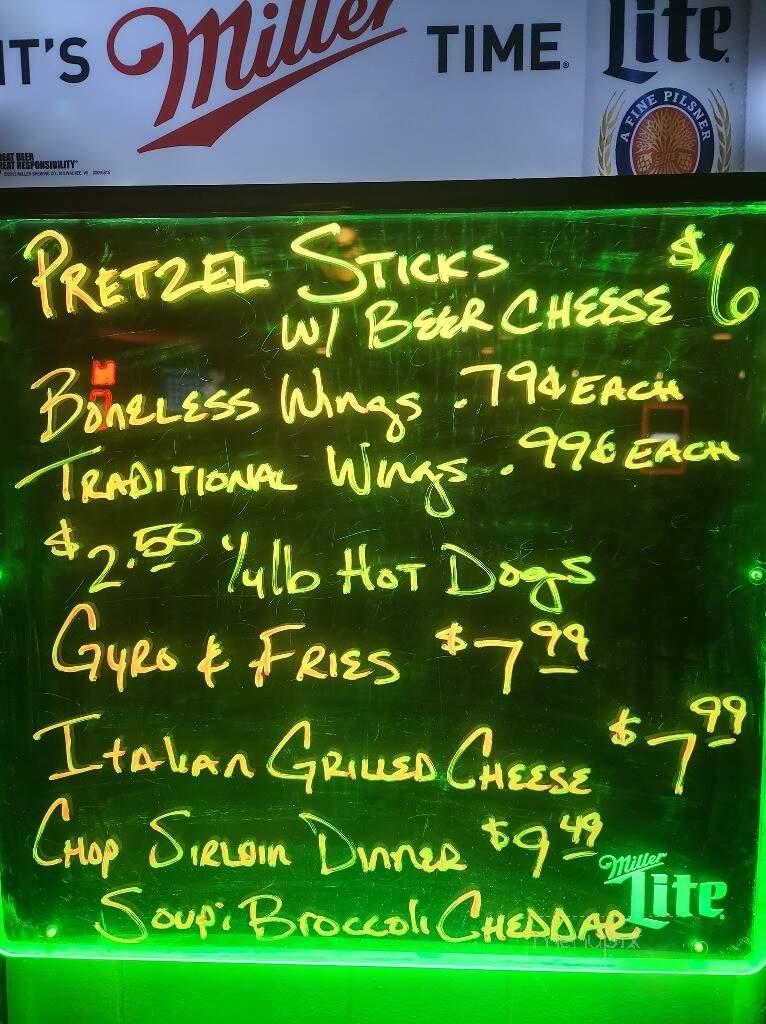 IT'S Miller TIME. Lite
A FINE PILSNER
EAT BEER
EAT RESPONSIBILITY
PRETZEL STICKS $6
W/ BEER CHEESE
BONELESS WINGS .79¢ EACH
TRADITIONAL WINGS .99¢ EACH
$2.50 1/4lb HOT DOGS
GYRO & FRIES $7.99
ITALIAN GRILLED CHEESE $7.99
CHOP SIRLOIN DINNER $9.49
SOUP: BROCCOLI CHEDDAR
Miller
Lite